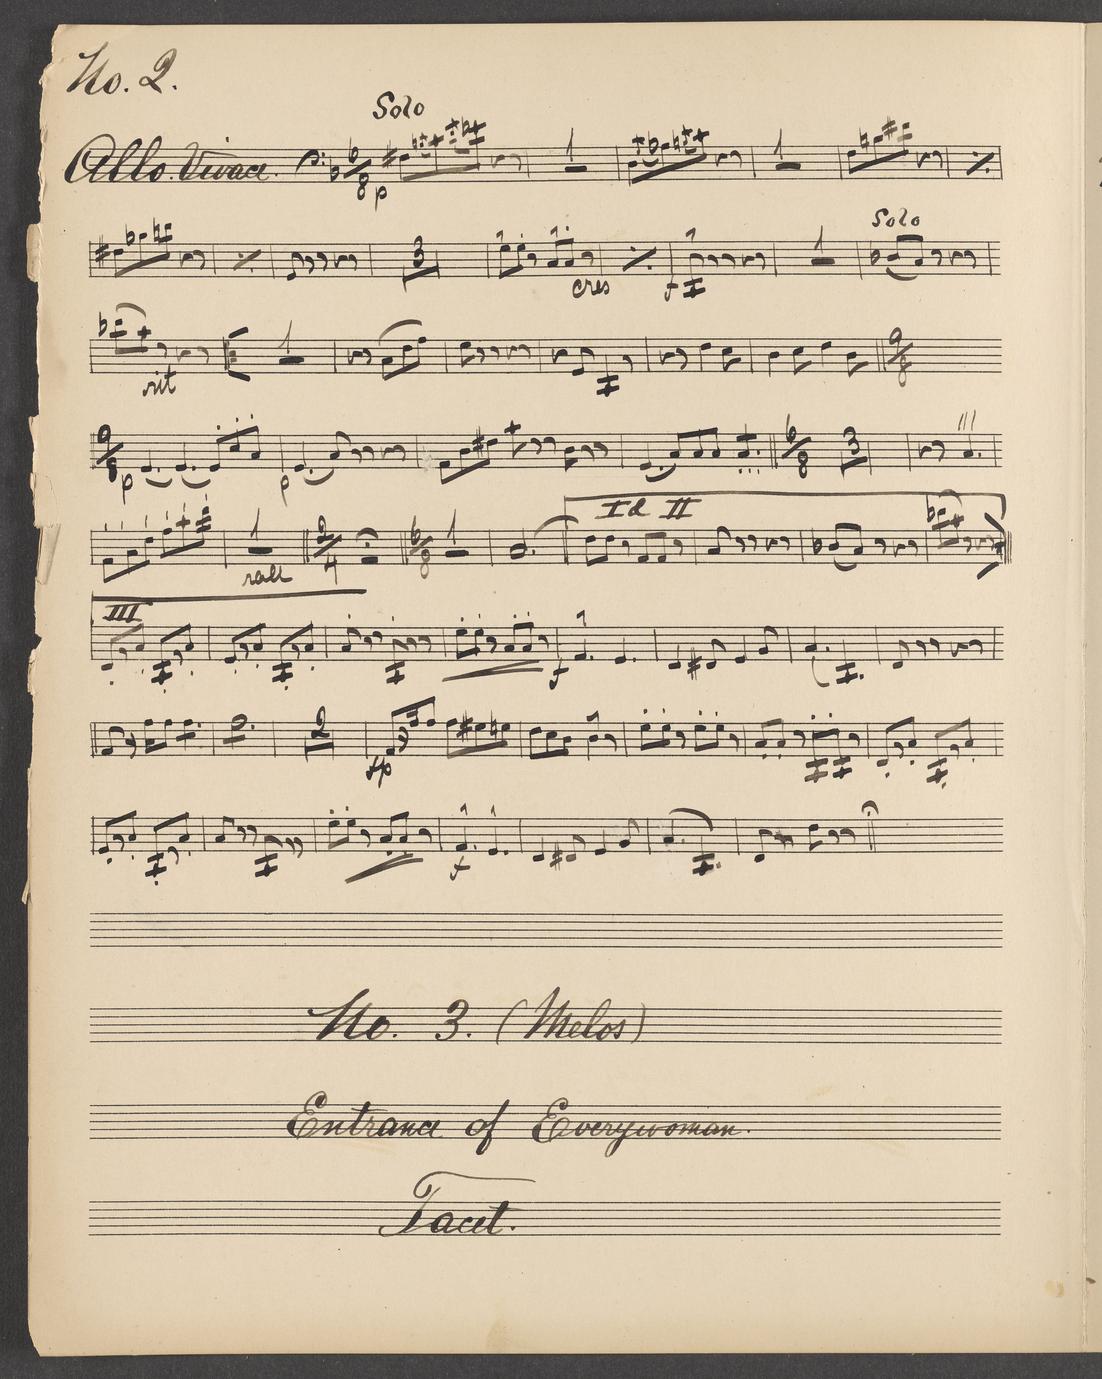 No. 2.
Solo
Allo. Vivace. 6 8 p 1 1
Solo
3 cres f 1
rit 1 9 8
9 8 p p 6 8 3
I & II
1 rall 2 4 6 8 1
III
f
2 fp
f
No. 3. (Melos)
Entrance of Everywoman.
Tacet.